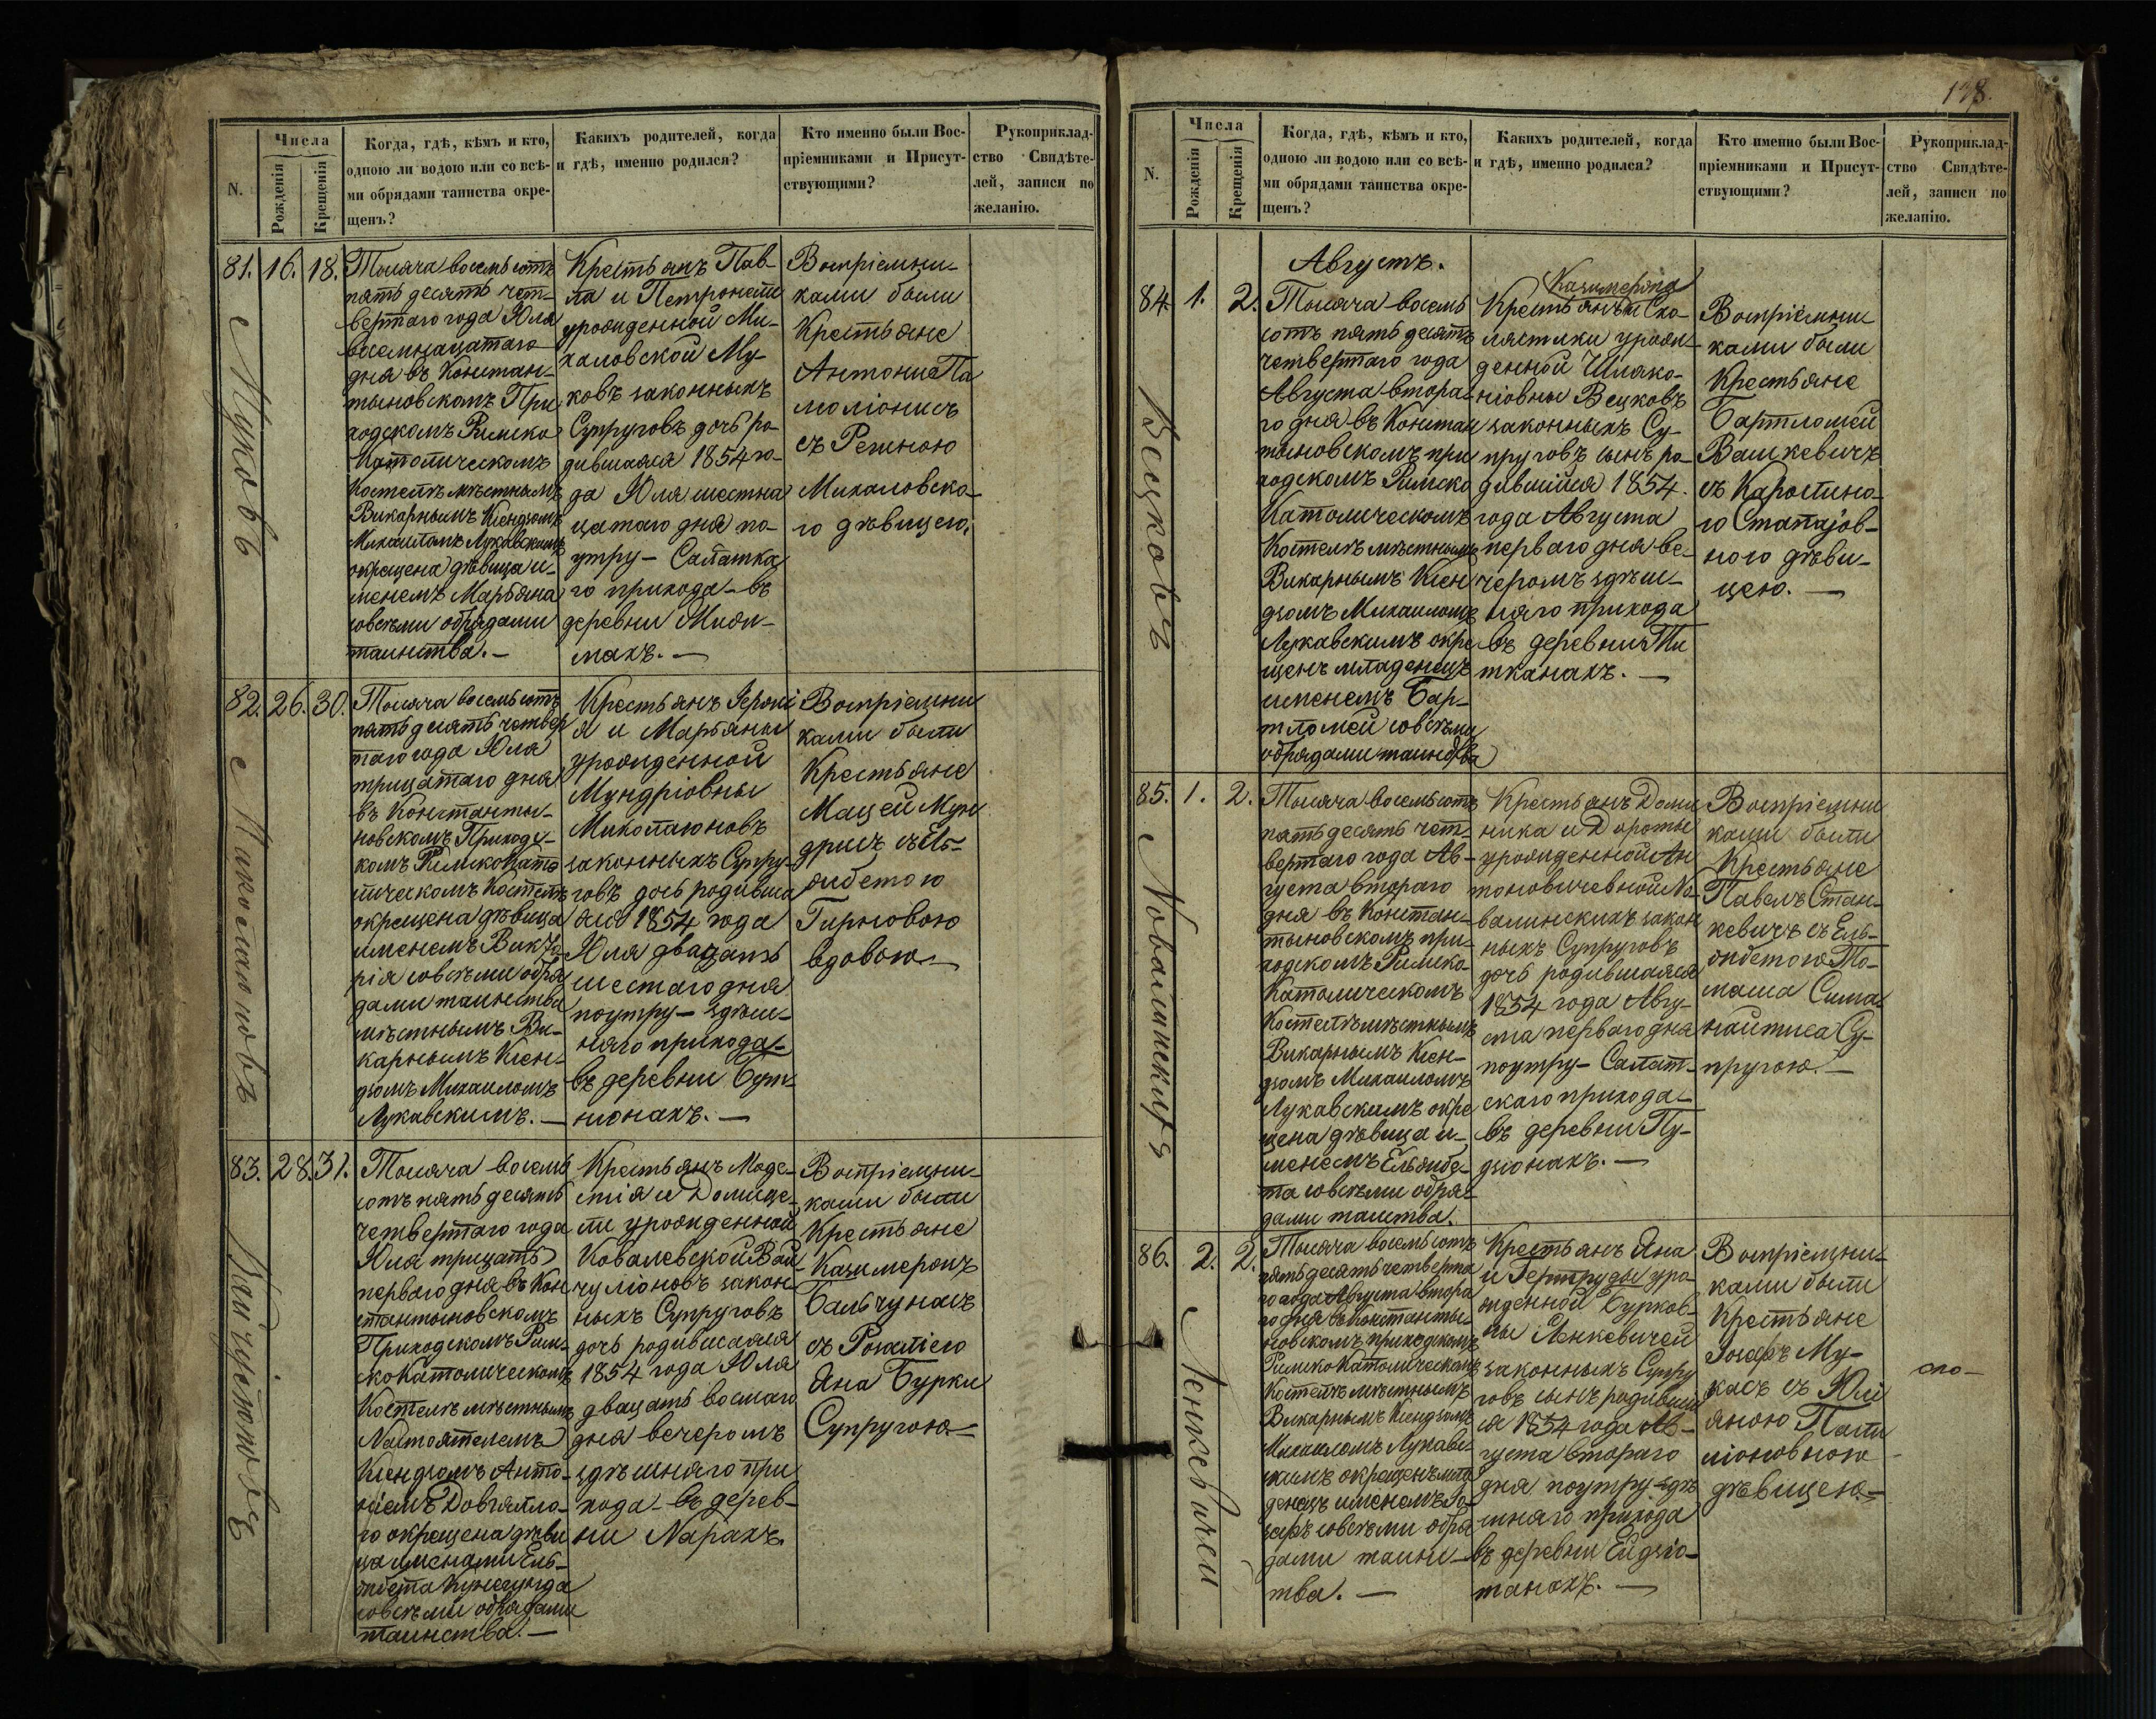 138.
N.
Числа
Рожденія
Крещенія
Когда, гдѣ, кѣмъ и кто,
одною ли водою или со всѣ-
ми обрядами таинства окре-
щенъ?
Какихъ родителей, когда
и гдѣ, именно родился?
Кто именно были Вос-
пріемниками и Присут-
ствующими?
Рукоприклад-
ство Свидѣте-
лей, записи по
желанію.
81. 16. 18.
Муковъ
Тысяча восемьсотъ
пятьдесятъ чет-
вертаго года Юля
восемнацатаго
дня въ Констан-
тыновскомъ При
ходскомъ Римско
Католическомъ
Костелѣ мѣстнымъ
Викарнымъ Ксендзомъ
Михаиломъ Лукавскимъ
окрещена дѣвица и-
менемъ Марьяна
совсѣми обрядами
таинства.-
Крестьянъ Пав-
ла и Петронели
урожденной Ми-
халовской Му-
ковъ законныхъ
Супруговъ дочь ро-
дившаяся 1854 го-
да Юля шестна
цатаго дня по-
утру - Салатска
го прихода - въ
деревни Мижи-
махъ. -
Воспріемни-
ками были
Крестьяне
Антони Па
молíонисъ
съ Региною
Михаловско-
го дѣвицею.
82. 26. 30.
Миколаюновъ
Тысяча восемьсотъ
пятьдесятъ четвер
таго года Юля
трицатаго дня
въ Константы-
новскомъ Приходс-
комъ Римскокато
лическомъ Костелѣ
окрещена дѣвица
именемъ Викто-
рія совсѣми обря
дами таинства
мѣстнымъ Ви-
карнымъ Ксен-
дзомъ Михаиломъ
Лукавскимъ. -
Крестьянъ Героні
я и Марьяны
урожденной
Мундріовны
Миколаюновъ
законныхъ Супру-
говъ дочь родивша
аяся 1854 года
Юля двадцать
шестаго дня
поутру - здѣш-
няго прихода -
въ деревни Бут-
нюнахъ. -
Воспріемни
ками были
Крестьяне
Мацей Мун
дрисъ съ Ель-
жбетою
Гирновою
вдовою -
83. 28. 31.
Вайчуліоновъ
Тысяча восемь
сотъ пятьдесятъ
четвертаго года
Юля трицать
перваго дня въ Кон
стантыновскомъ
Приходскомъ Рим-
скокатолическомъ
Костелѣ мѣстнымъ
Настоятелемъ
Ксендзомъ Анто-
ніемъ Довгялло-
го окрещена дѣви
ца именами Ель-
жбета Кунегунда
совсѣми обрядами
таинства. -
Крестьянъ Моде-
стія и Домице-
ли урожденной
Ковалевской Вай-
чуліоновъ закон-
ныхъ Супруговъ
дочь родившаяся
1854 года Юля
двацать восмаго
дня вечеромъ
здѣшняго при
хода - въ дерев-
ни Нарахъ.
Воспріемни-
ками были
Крестьяне
Казимеронъ
Бальчунасъ
съ Розаліею
Яна Бурки
Супругою. -
N.
Числа
Рожденія
Крещенія
Когда, гдѣ, кѣмъ и кто,
одною ли водою или со всѣ-
ми обрядами таинства окре-
щенъ?
Какихъ родителей, когда
и гдѣ, именно родился?
Кто именно были Вос-
пріемниками и Присут-
ствующими?
Рукоприклад-
ство Свидѣте-
лей, записи по
желанію.
Августъ.
84. 1. 2.
Вецковъ
Тысяча восемь
сотъ пятьдесятъ
четвертаго года
Августа втора-
го дня въ Констан
тыновскомъ при
ходскомъ Римско
Католическомъ
Костелѣ мѣстнымъ
Викарнымъ Ксен
дзомъ Михаиломъ
Лукавскимъ окре
щенъ младенецъ
именемъ Бар-
тломей совсѣми
обрядами таинства
Казимержа
Крестьянъ и Ско-
лястыки урож-
денной Шляко-
ніовны Вецковъ
законныхъ Су-
пруговъ сынъ ро-
дившійся 1854.
года Августа
перваго дня ве-
черомъ здѣш-
няго прихода
въ деревни Ти
тканахъ. -
Воспріемни
ками были
Крестьяне
Бартломей
Вашкевичъ
съ Каролино-
ю Станајов-
ного дѣви-
цею. -
85. 1. 2.
Новалинскихъ
Тысяча восемьсотъ
пятьдесятъ чет-
вертаго года Ав-
густа втораго
дня въ Констан-
тыновскомъ при-
ходскомъ Римско-
Католическомъ
Костелѣ мѣстнымъ
Викарнымъ Ксен-
дзомъ Михаиломъ
Лукавскимъ окре
щена дѣвица и-
менемъ Ельжбе-
та совсѣми обря-
дами таинства.
Крестьянъ Доми
ника и Дороты
урожденной Ан
тоновичевной Но-
валинскихъ закон
ныхъ Супруговъ
дочь родившаяся
1854 года Авгу-
ста перваго дня
поутру - Салат-
скаго прихода -
въ деревни Пу-
дзіонахъ. -
Воспріемни
ками были
Крестьяне
Павелъ Стан-
кевичъ съ Ель-
жбетою То-
маша Сима-
найтиса Су-
пругою. -
86. 2. 2.
Ленкевичей
Тысяча восемьсотъ
пятьдесятъ четверта
го года Августа втора
го дня въ Константы-
новскомъ приходскомъ
Римскокатолическомъ
Костелѣ мѣстнымъ
Викарнымъ Ксендзомъ
Михаиломъ Лукавс-
кимъ окрещенъ мла
денецъ именемъ Іо-
зефъ совсѣми обря
дами таинс-
тва. -
Крестьянъ Яна
и Гертруды уро-
жденной Бурков-
ны Ленкевичей
законныхъ Супру
говъ сынъ родивші
ся 1854 года Ав-
густа втораго
дня поутру - здѣ
шняго прихода
въ деревни Ейдзіо-
танахъ. -
Воспріемни-
ками были
Крестьяне
Іозефъ Му-
касъ съ Юлі
яною Папи
ліоновною
дѣвицею. -